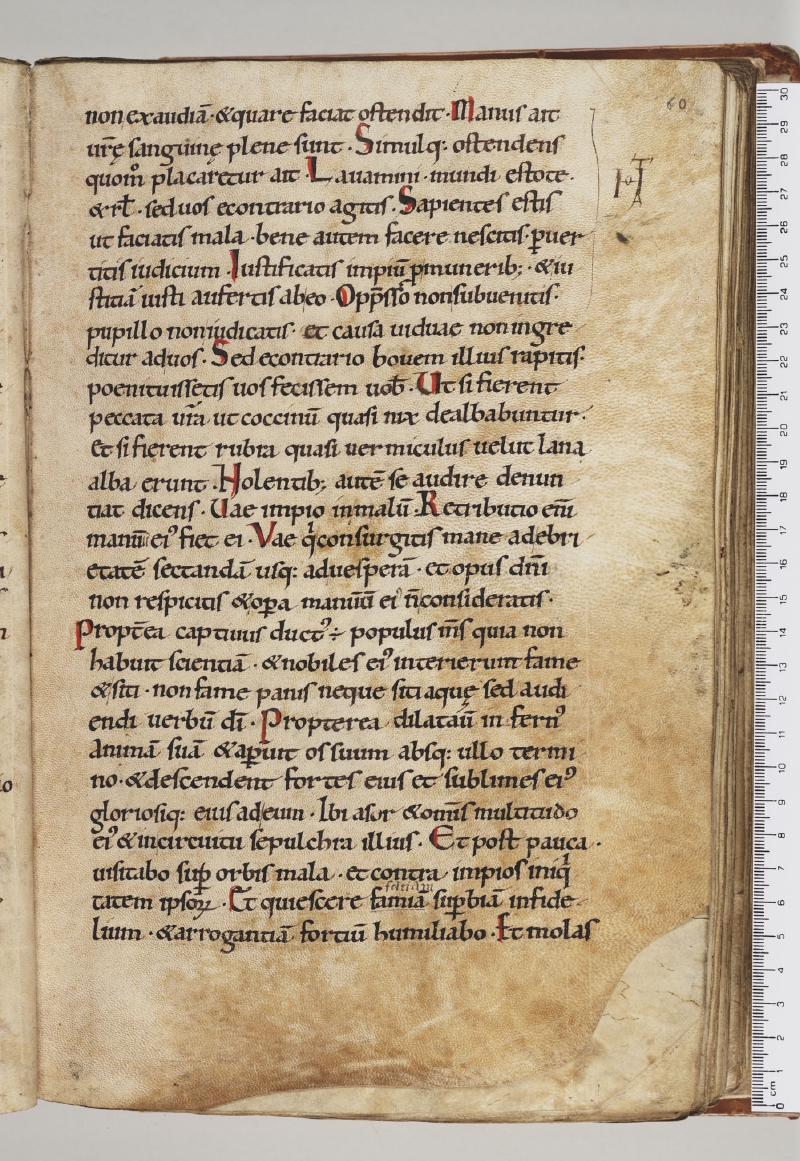 60
non exaudiā · & quare faciat ostendit · Manus ait
urę̄ sanguine plene sunt · Simulq; ostendens
quom̄ placaretur ait · Lauamini · mundi estote ·
& rł · sed uos econtrario agitis · Sapientes estis
ut faciatis mala · bene autem facere nescitis · ꝑuer
titis iudicium · Iustificatis impiū ꝑ munerib; · & iu
stitiā iusti aufertis ab eo · Opp̄sso non subuenitis ·
pupillo non iudicatis · et causa uiduae non ingre
ditur ad uos · Sed econtrario bouem illius rapitis ·
poenituissetis uos fecissem uob̄ · Ut si fierent
peccata urā ut coccinū quasi nix dealbabuntur ·
Et si fierent rubra quasi uermiculus uelut lana
alba erunt · Nolentib; autē se audire denun
tiat dicens · Uae impio in malū · Retributio eni͞
manuū eiꝰ fiet ei · Vae qͥ consurgitis mane ad ebri
etatē sectandā usq; ad uesperā · et opus dn̄i
non respicitis & oꝑa manuū ei n̄ consideratis ·
Propt̄ea captiuus ductꝰ ÷ populus m̄s quia non
habuit scientiā · & nobiles eiꝰ interierunt fame
& siti · non fame panis neque siti aquę sed audi
endi uerbū dī · Propterea dilatauī infernꝰ
animā suā & aꝑuit os suum absq; ullo termi
no · & descendent fortes eius et sublimes eiꝰ
gloriosiq; eius ad eum · Ibi asor & om̄s multitudo
eiꝰ & in circuitu sepulchra illius · Et post pauca ·
uisitabo suꝑ orbis mala · et contra impios iniqͥ
tatem ipsoꝝ · Et quiescere famiā suꝑbiā infide
lium · & arrogantiā fortiū humiliabo · Et molas